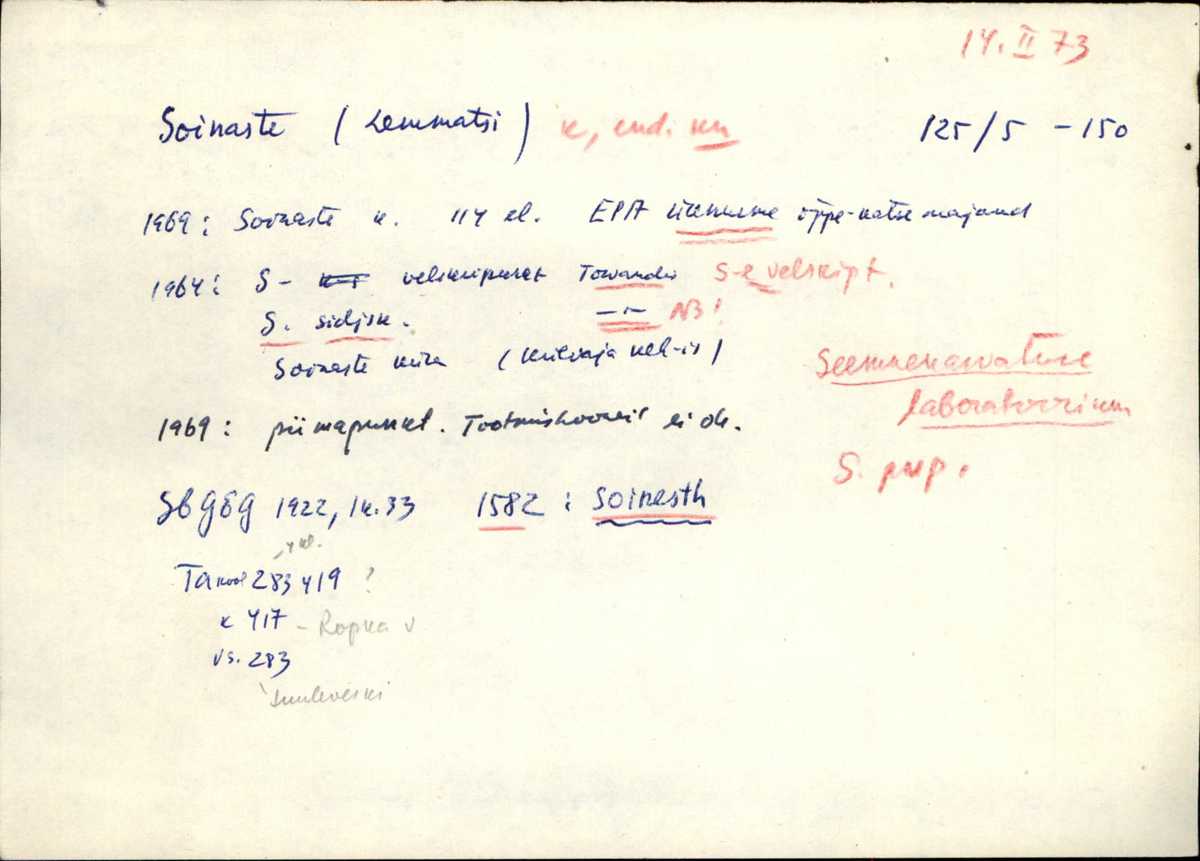 14. II 73
Soinaste (Lemmatsi) k, end. kn 125/5 - 150
1969: Soinaste k. 114 el. EPA õppe-katse majand
1964: S- velskripunkt S-e velskipt.
S. sidejsk. -"- NB!
Soinaste küla (Külvaja kolh-is)
Seemnekasvatuse
laboratoorium
1969: piimapunkt. Tootmishooneid ei ole.
S. psp.
Sb GEG 1922, lk. 33 1582: Soinesth
, 4 kl.
Ta kool 283 419 ?
k 417 - Ropka v
vs. 283
tuuleveski